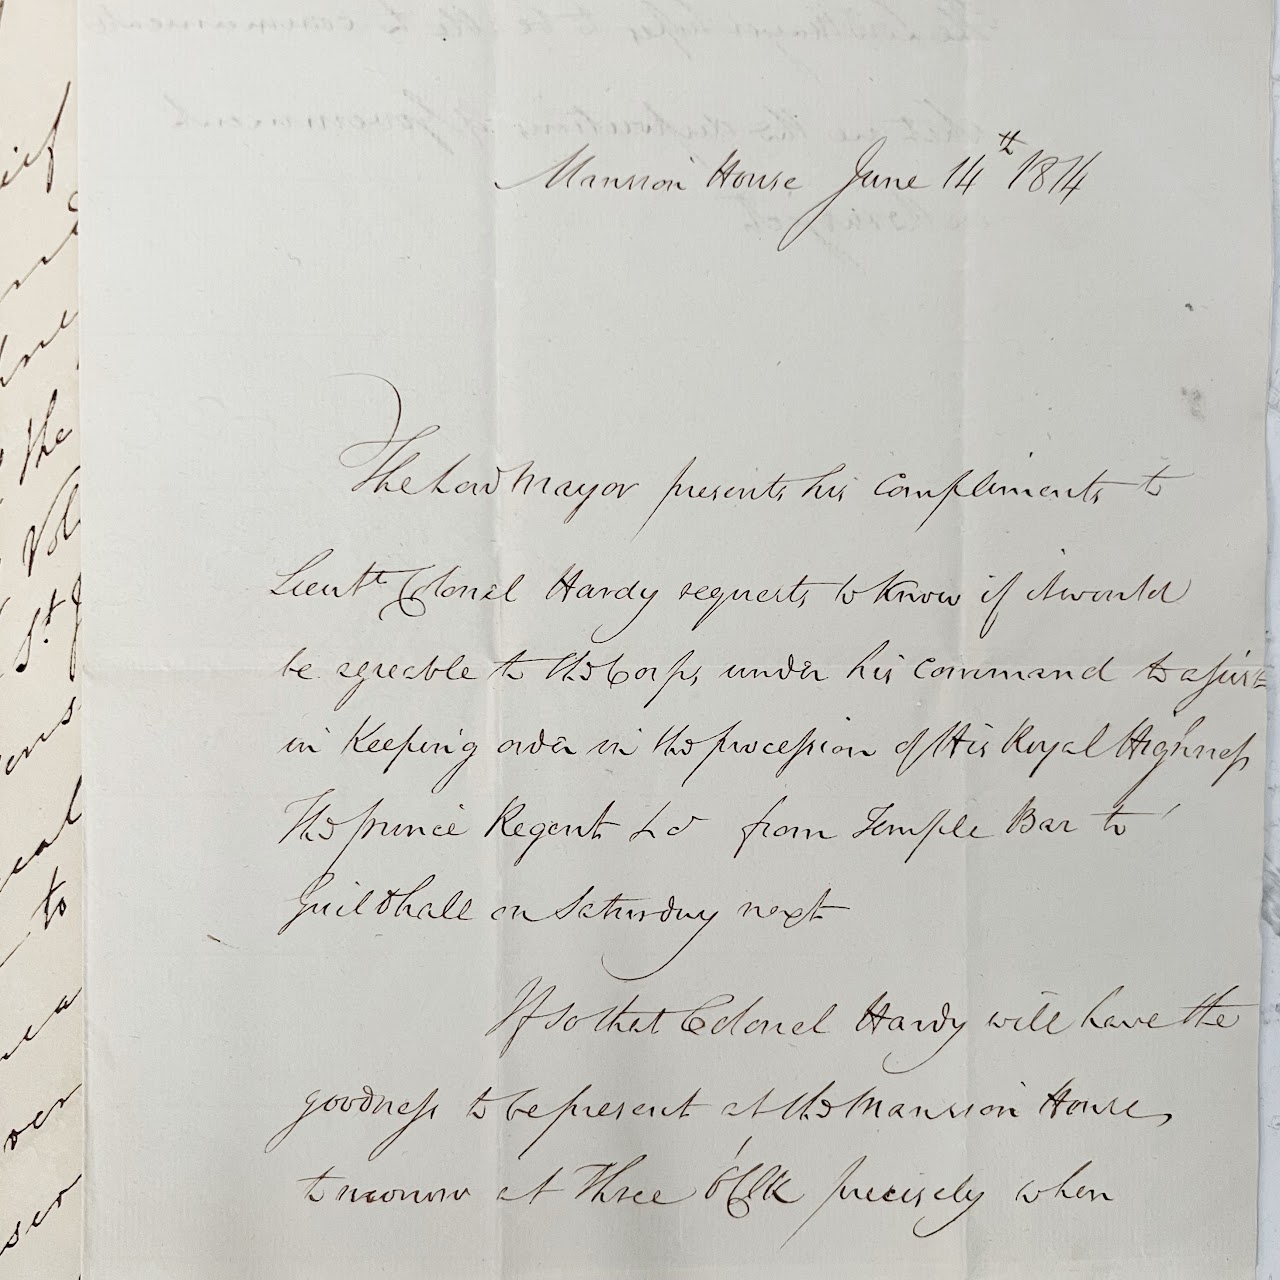 Mansion House June 14th 1814
The Lord Mayor presents his Compliments to
Lieutt Colonel Hardy requests to know if it would
be agreable to the Corps under his Command to assist
in Keeping order in the procession of His Royal Highness
The prince Regent &c from Temple Bar to
Guildhall on Saturday next
If so that Colonel Hardy will have the
goodness to be present at the Mansion House
tomorrow at Three O'Clk precisely when
the
Vol
St
to